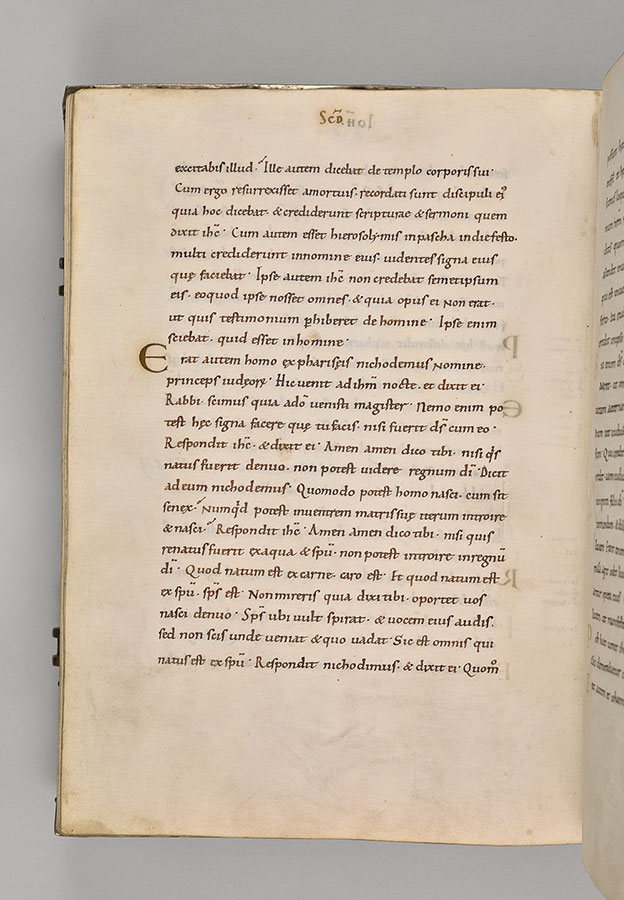 Scd̄.
excitabis illud. Ille autem dicebat de templo corporis sui.
Cum ergo resurrexisset amortuis. recordati sunt discipuli ei᾽
quia hoc dicebat. & crediderunt scripturae & sermoni quem
dixit ihc̄. Cum autem esset hierosolymis inpascha indiefesto.
multi crediderunt innomine eius. uidentes signa eius
quę faciebat. Ipse autem ihc̄ non credebat semetipsum
eis. eoquod ipse nosset omnes. & quia opus ei Non erat.
ut quis testimonium phiberet de homine. Ipse enim
sciebat. quid esset in homine.
Erat autem homo ex phariseis nichodemus Nomine.
princeps iudęorꝝ. Hic uenit ad ihm̄ nocte. et dixit ei.
Rabbi. scimus quia ado᷒ uenisti magister. Nemo enim po
test hęc signa facere quę tu facis. nisi fuerit ds̄ cum eo.
Respondit ihc̄. & dixit ei. Amen amen dico tibi. nisi qs̄
natus fuerit denuo. non potest uidere regnum dī. Dicit
ad eum nichodemus. Quomodo potest homo nasci. cum sit
senex. Numqd̄ potest inuentrem matris suę iterum introire
& nasci. Respondit ihc̄. Amen amen dico tibi. nisi quis
renatus fuerit exaqua & spū. non potest introire inregnū
dī. Quod natum est ex carne. caro est. Et quod natum est
ex spū. sps̄ est. Non mireris quia dixi tibi. oportet uos
nasci denuo. Sps̄ ubi uult spirat. & uocem eius audis.
sed non scis unde ueniat & quo uadat. Sic est omnis qui
natus est ex spū. Respondit nichodimus. & dixit ei. Quom̄